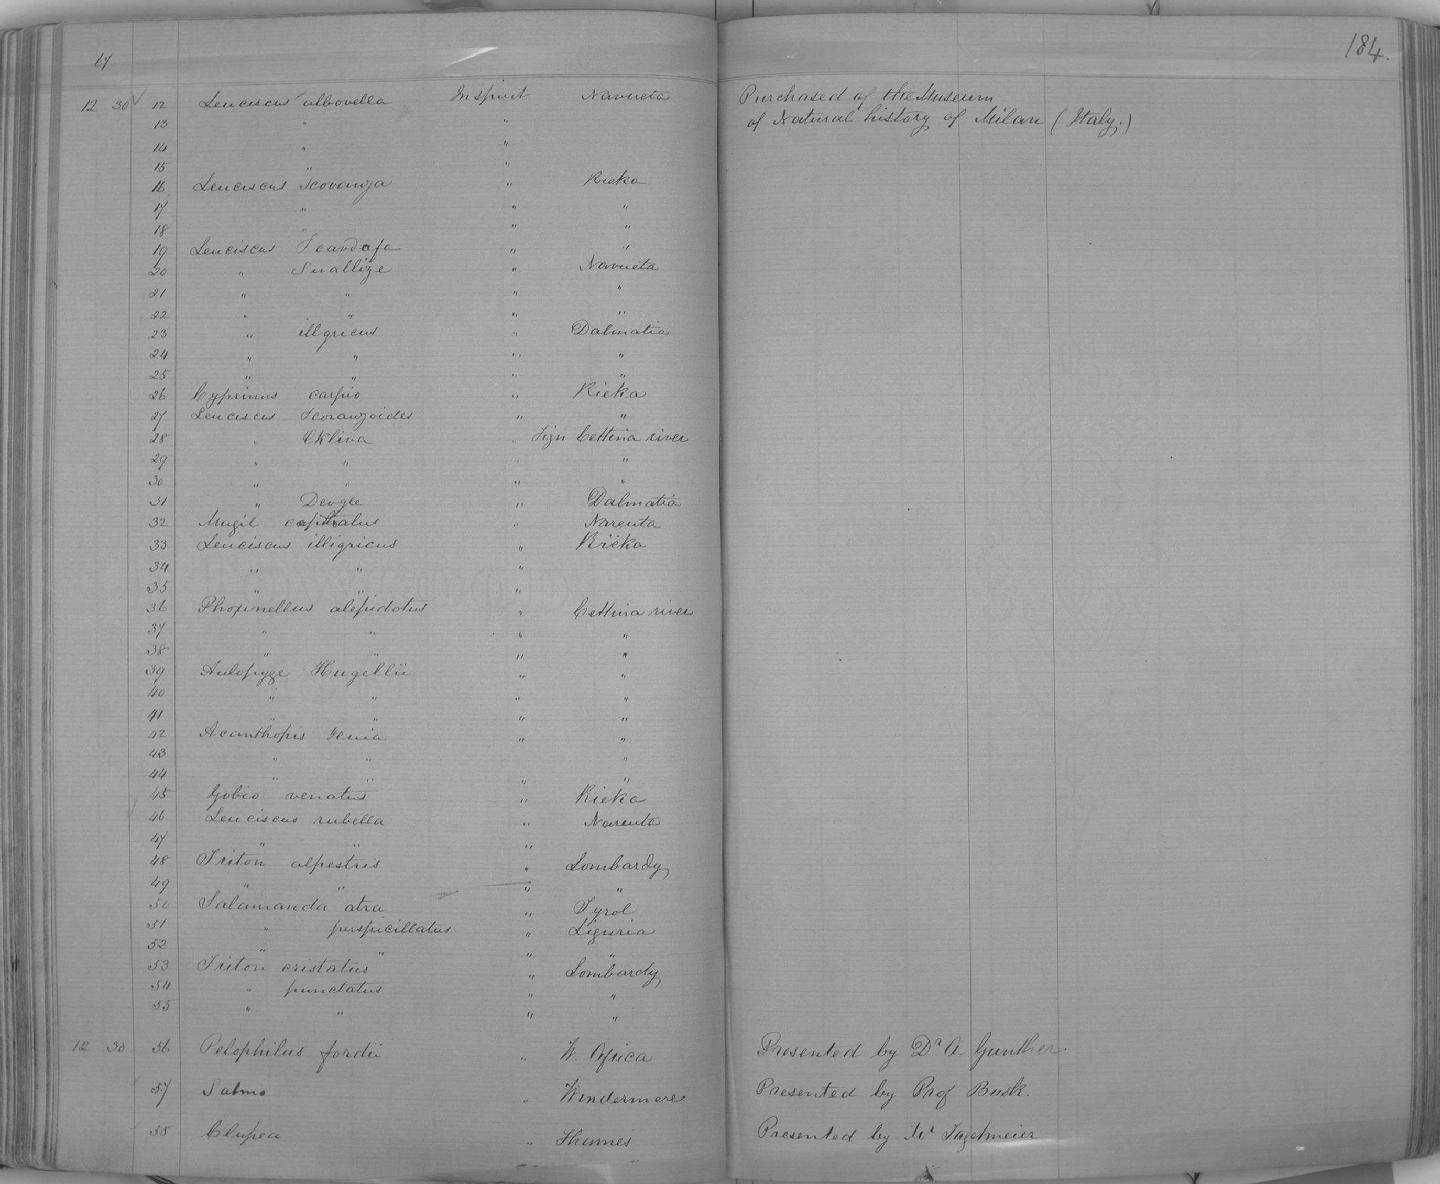 17
184.
12 30 12 Leuciscus albovella In spirit Navueta Purchased of the Museum
13 " " of Natural history of Milan (Italy.)
14 " "
15 " "
16 Leuciscus Scovanza " Rieka
17 " " "
18 " " "
19 Leuciscus Scardafa " "
20 " Svallize " Navueta
21 " " " "
22 " " " "
23 " illgricus " Dalmatia
24 " " " "
25 " " " "
26 Cyprinus carpio " Rieka
27 Leuciscus Scoranzoides " "
28 " Ukliva " Sign Cettina river
29 " " " "
30 " " " "
31 " Devgle " Dalmatia
32 Mugil cephalus " Narenta
33 Leuciscus illigricus " Rieka
34 " " "
35 " " "
36 Phoxinellus alepidotus " Cettina river
37 " " " "
38 " " " "
39 Aulopyge Hugellii " "
40 " " " "
41 " " " "
42 Acanthopis tenia " "
43 " " "
44 " " " "
45 Gobio venatus " Rieka
46 Leuciscus rubella " Narenta
47 " " "
48 Triton alpestris " Lombardy
49 " " " "
50 Salamanda atra " Tyrol
51 " perspicillatus " Liguria
52 " " " "
53 Triton cristatus " Lombardy
54 " punctatus " "
55 " " " "
12 30 56 Pelophilus fordii " W. Africa Presented by Dr A. Gunther.
57 Salmo " Windermere Presented by Prof Busk.
58 Clupea " Thames Presented by Mr Tagetmeier